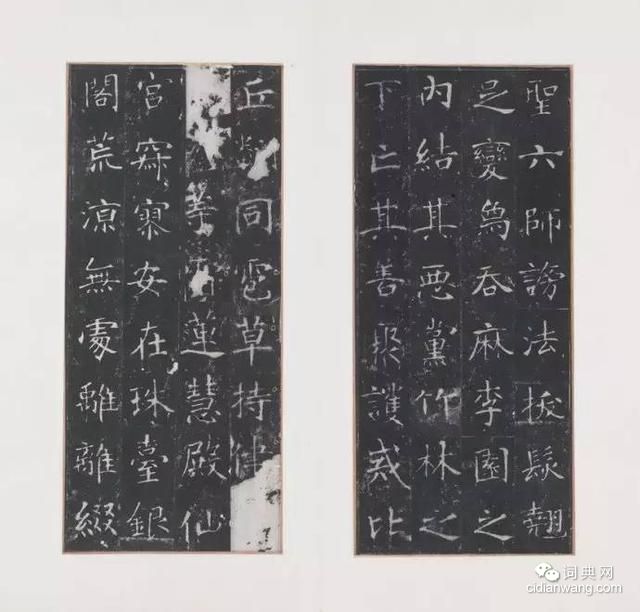 聖六師謗法拔髮翹
足變為吞麻李園之
內結其惡黨竹林之
下亡其善聚護戒比
丘同雹草持律
等霜蓮慧殿仙
宮寂寥安在珠臺銀
閣荒涼無處離離綴
词典网
cidianwang.com